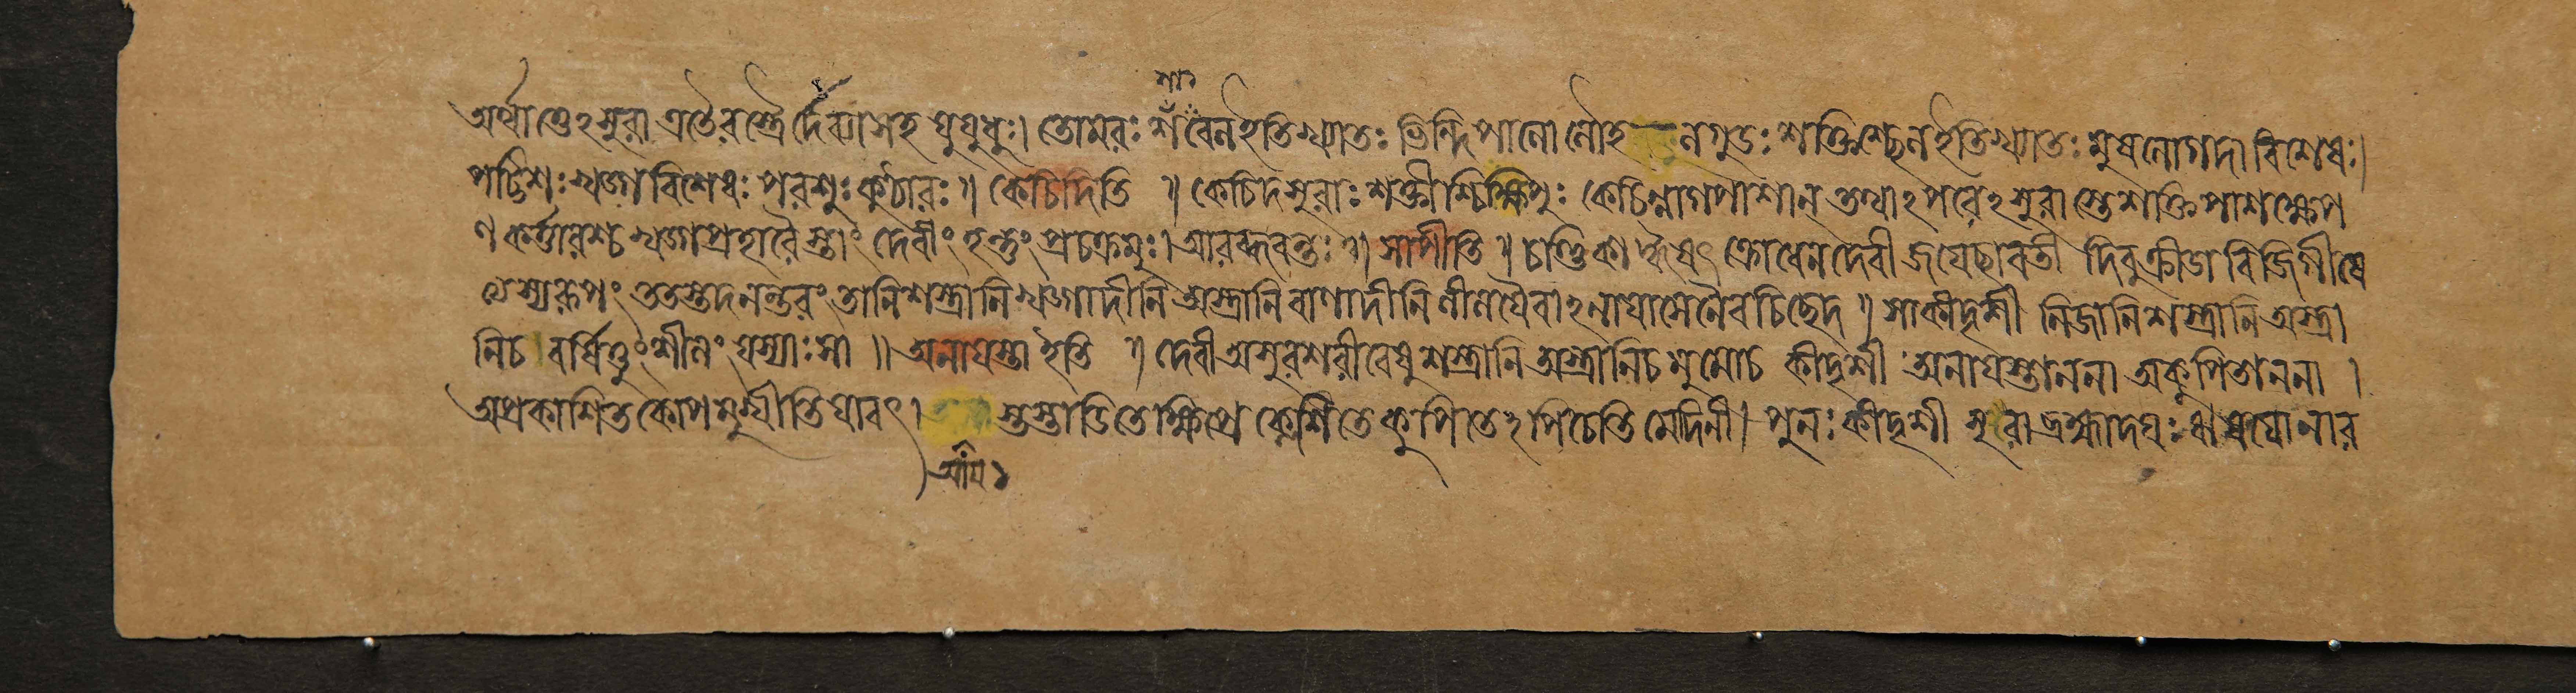 অর্থাত্তেঽসুরা এতৈরস্ত্রৈর্দেব্যা সহ যুযুধুঃ। তোমরঃ শাবেল ইতি খ্যাতঃ ভিন্দিপালো লোহ নগুডঃ শক্তিশ্ছেল ইতি খ্যাতঃ মুষলো গদা বিশেষঃ।
পট্টিশঃ খড্গ বিশেষঃ পরশুঃ কুঠারঃ॥ কেচিদিতি ॥ কেচিদসুরাঃ শক্তীশ্চিক্ষিপুঃ কেচিন্নাগপাশান্ তথাঽপরেঽসুরাস্তে শক্তিপাশক্ষেপ
ণ কর্ত্তারশ্চ খড্গপ্রহারৈস্তাং দেবীং হন্তুং প্রচক্রমুঃ। আরব্ধবন্তঃ॥ সাপীতি॥ চণ্ডিকা ক্রোধেন দেবী জযেছাবতী দিবুক্রীডা বিজিগীষে
ত্যেস্যরূপং ততস্তদনন্তরং তানি শস্ত্রানি খড্গাদীনি অস্ত্রানি বাণাদীনি লীলযৈবাঽনাযাসেনৈব চিছেদ॥ সা কীদৃশী নিজানি শস্ত্রানি অস্ত্রা
নিচ বর্ষিতুং শীলং যস্যাঃ সা ॥ অনাযস্তা ইতি ॥ দেবী অসুরশরীরেষু শস্ত্রানি অস্ত্রানিচ মুমোচ কীদৃশী অনাযস্তাননা অকুপিতাননা ।
অপ্রকাশিতকোপমুখীতি যাবৎ। স্তস্তাডিতে ক্ষিপ্তে ক্লেশিতে কুপিতেঽপিচেতি মেদিনী। পুনঃ কীদৃশী সুরা ব্রহ্মাদযঃ
আয১